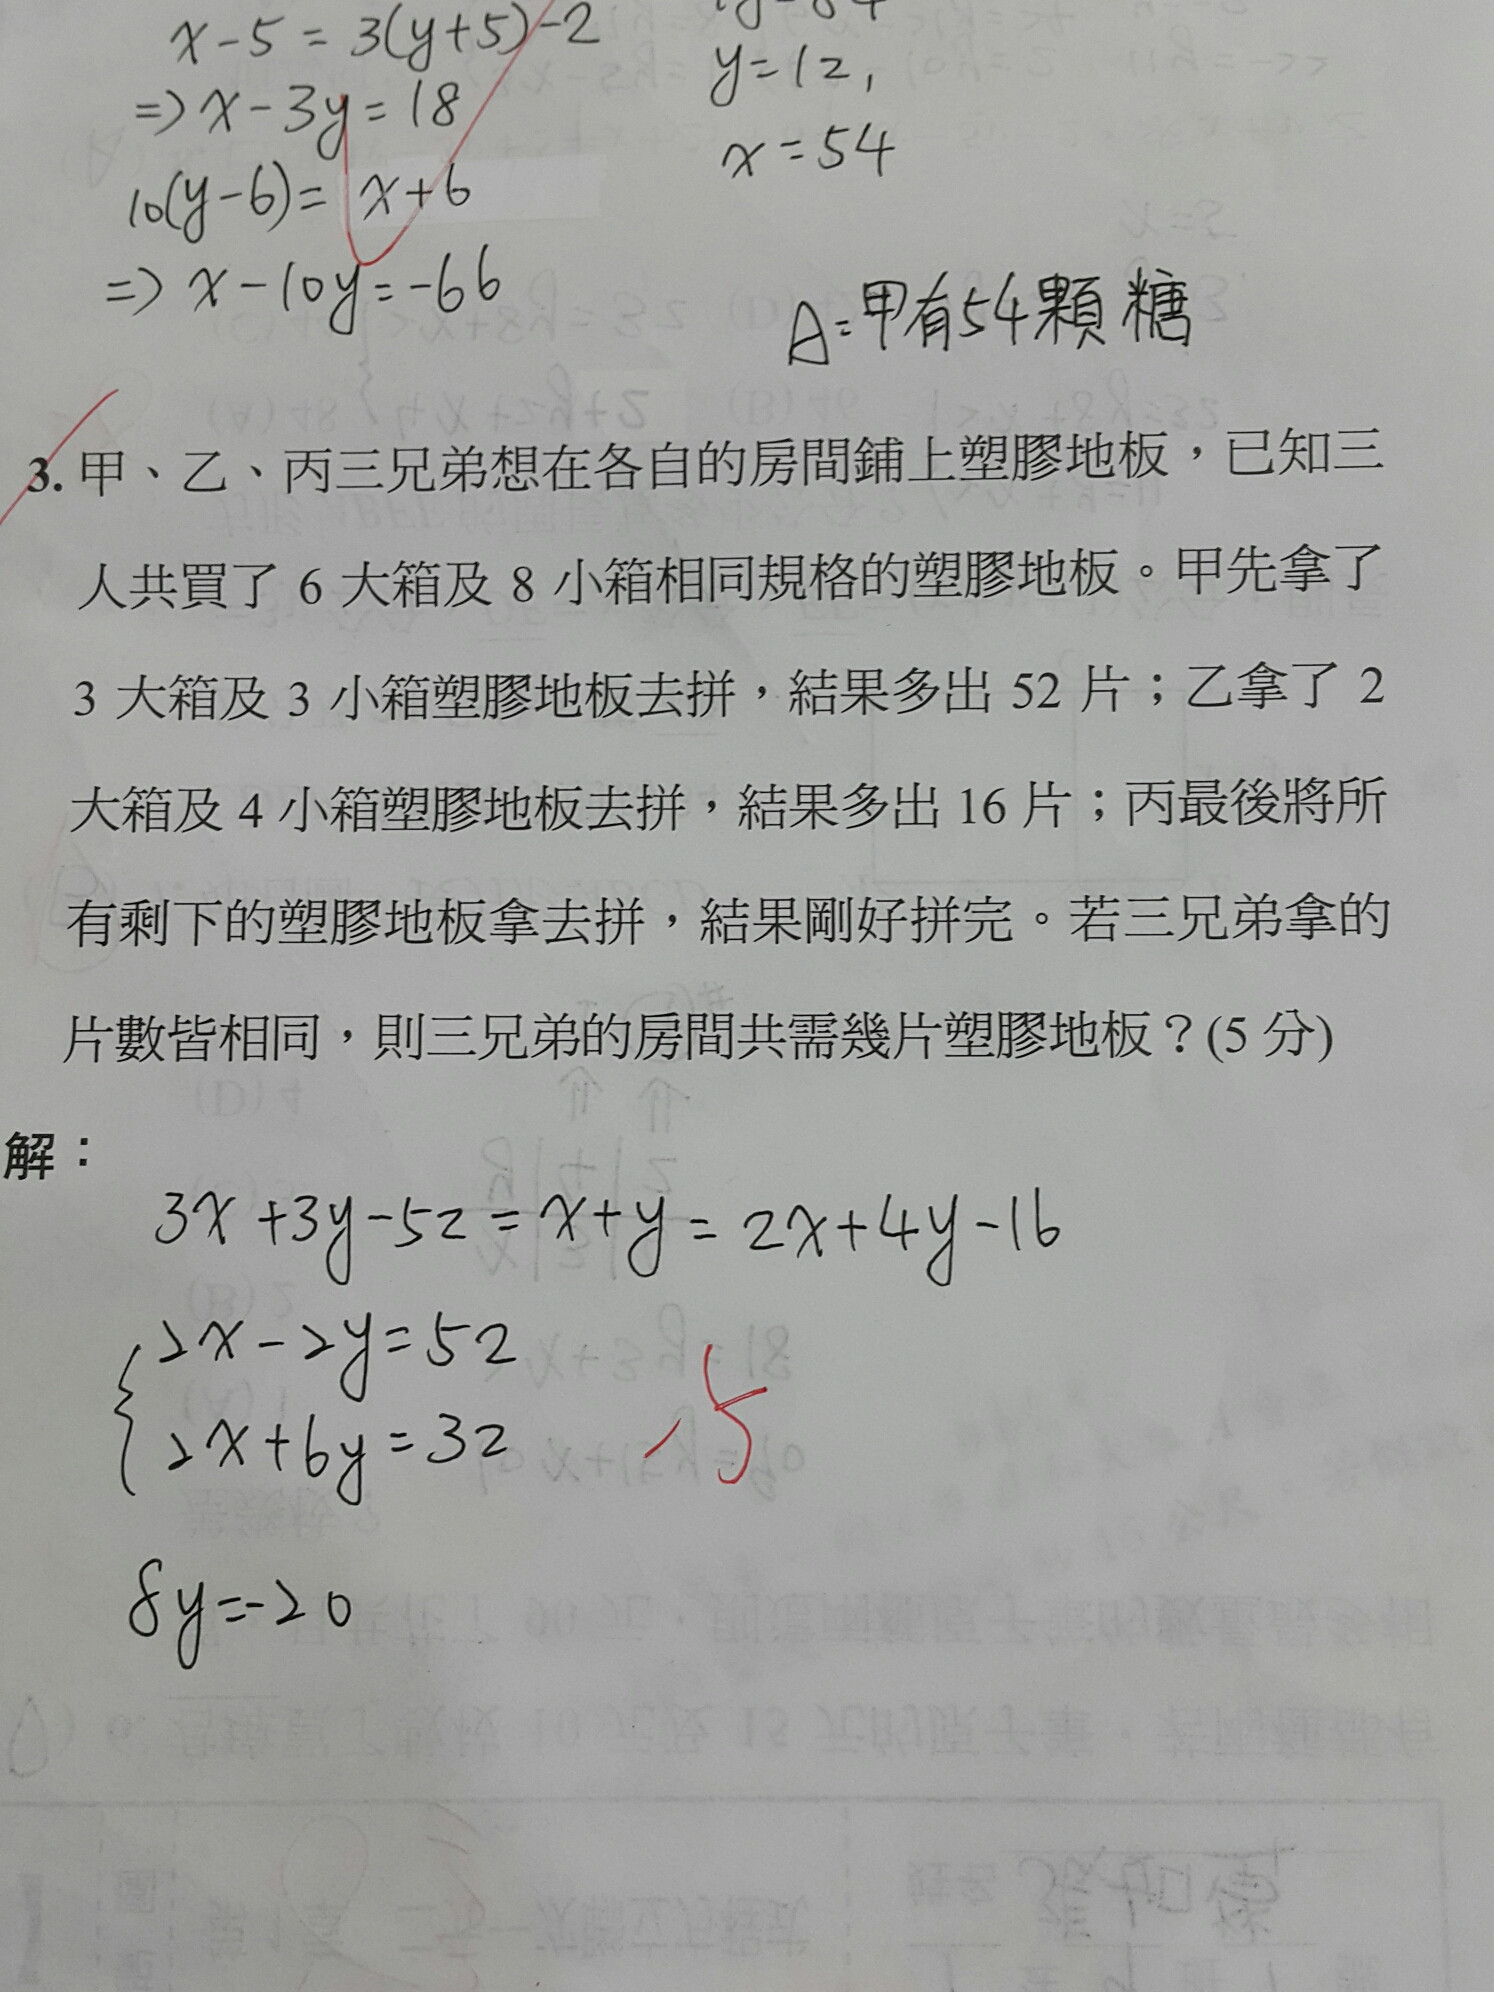 x-5=3(y+5)-2
y=12,
=>x-3y=18
x=54
10(y-6)=x+6
=>x-10y=-66
A=甲有54顆糖
3. 甲、乙、丙三兄弟想在各自的房間鋪上塑膠地板，已知三
人共買了 6 大箱及 8 小箱相同規格的塑膠地板。甲先拿了
3 大箱及 3 小箱塑膠地板去拼，結果多出 52 片；乙拿了 2
大箱及 4 小箱塑膠地板去拼，結果多出 16 片；丙最後將所
有剩下的塑膠地板拿去拼，結果剛好拼完。若三兄弟拿的
片數皆相同，則三兄弟的房間共需幾片塑膠地板？(5 分)
解：
3x+3y-52=x+y=2x+4y-16
2x-2y=52
2x+6y=32
-5
8y=-20